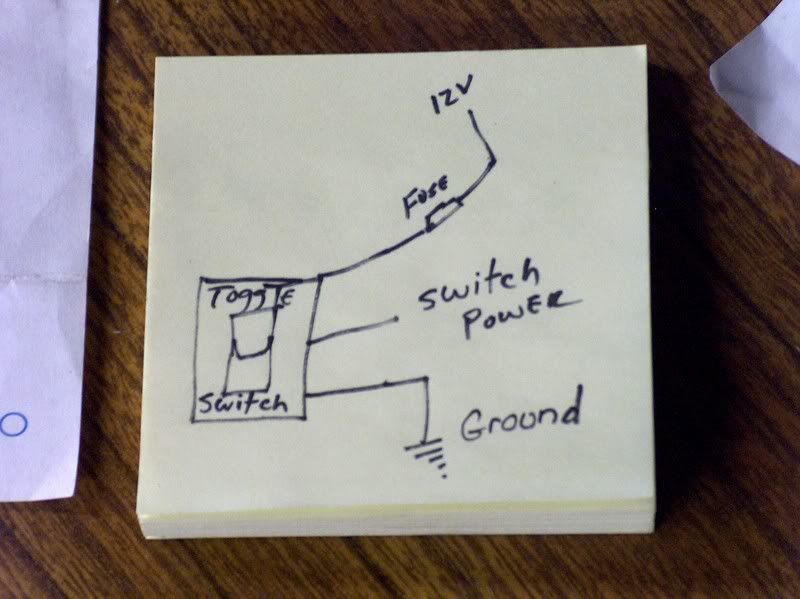 12V
Fuse
Toggle
Switch
Switch
Power
Ground